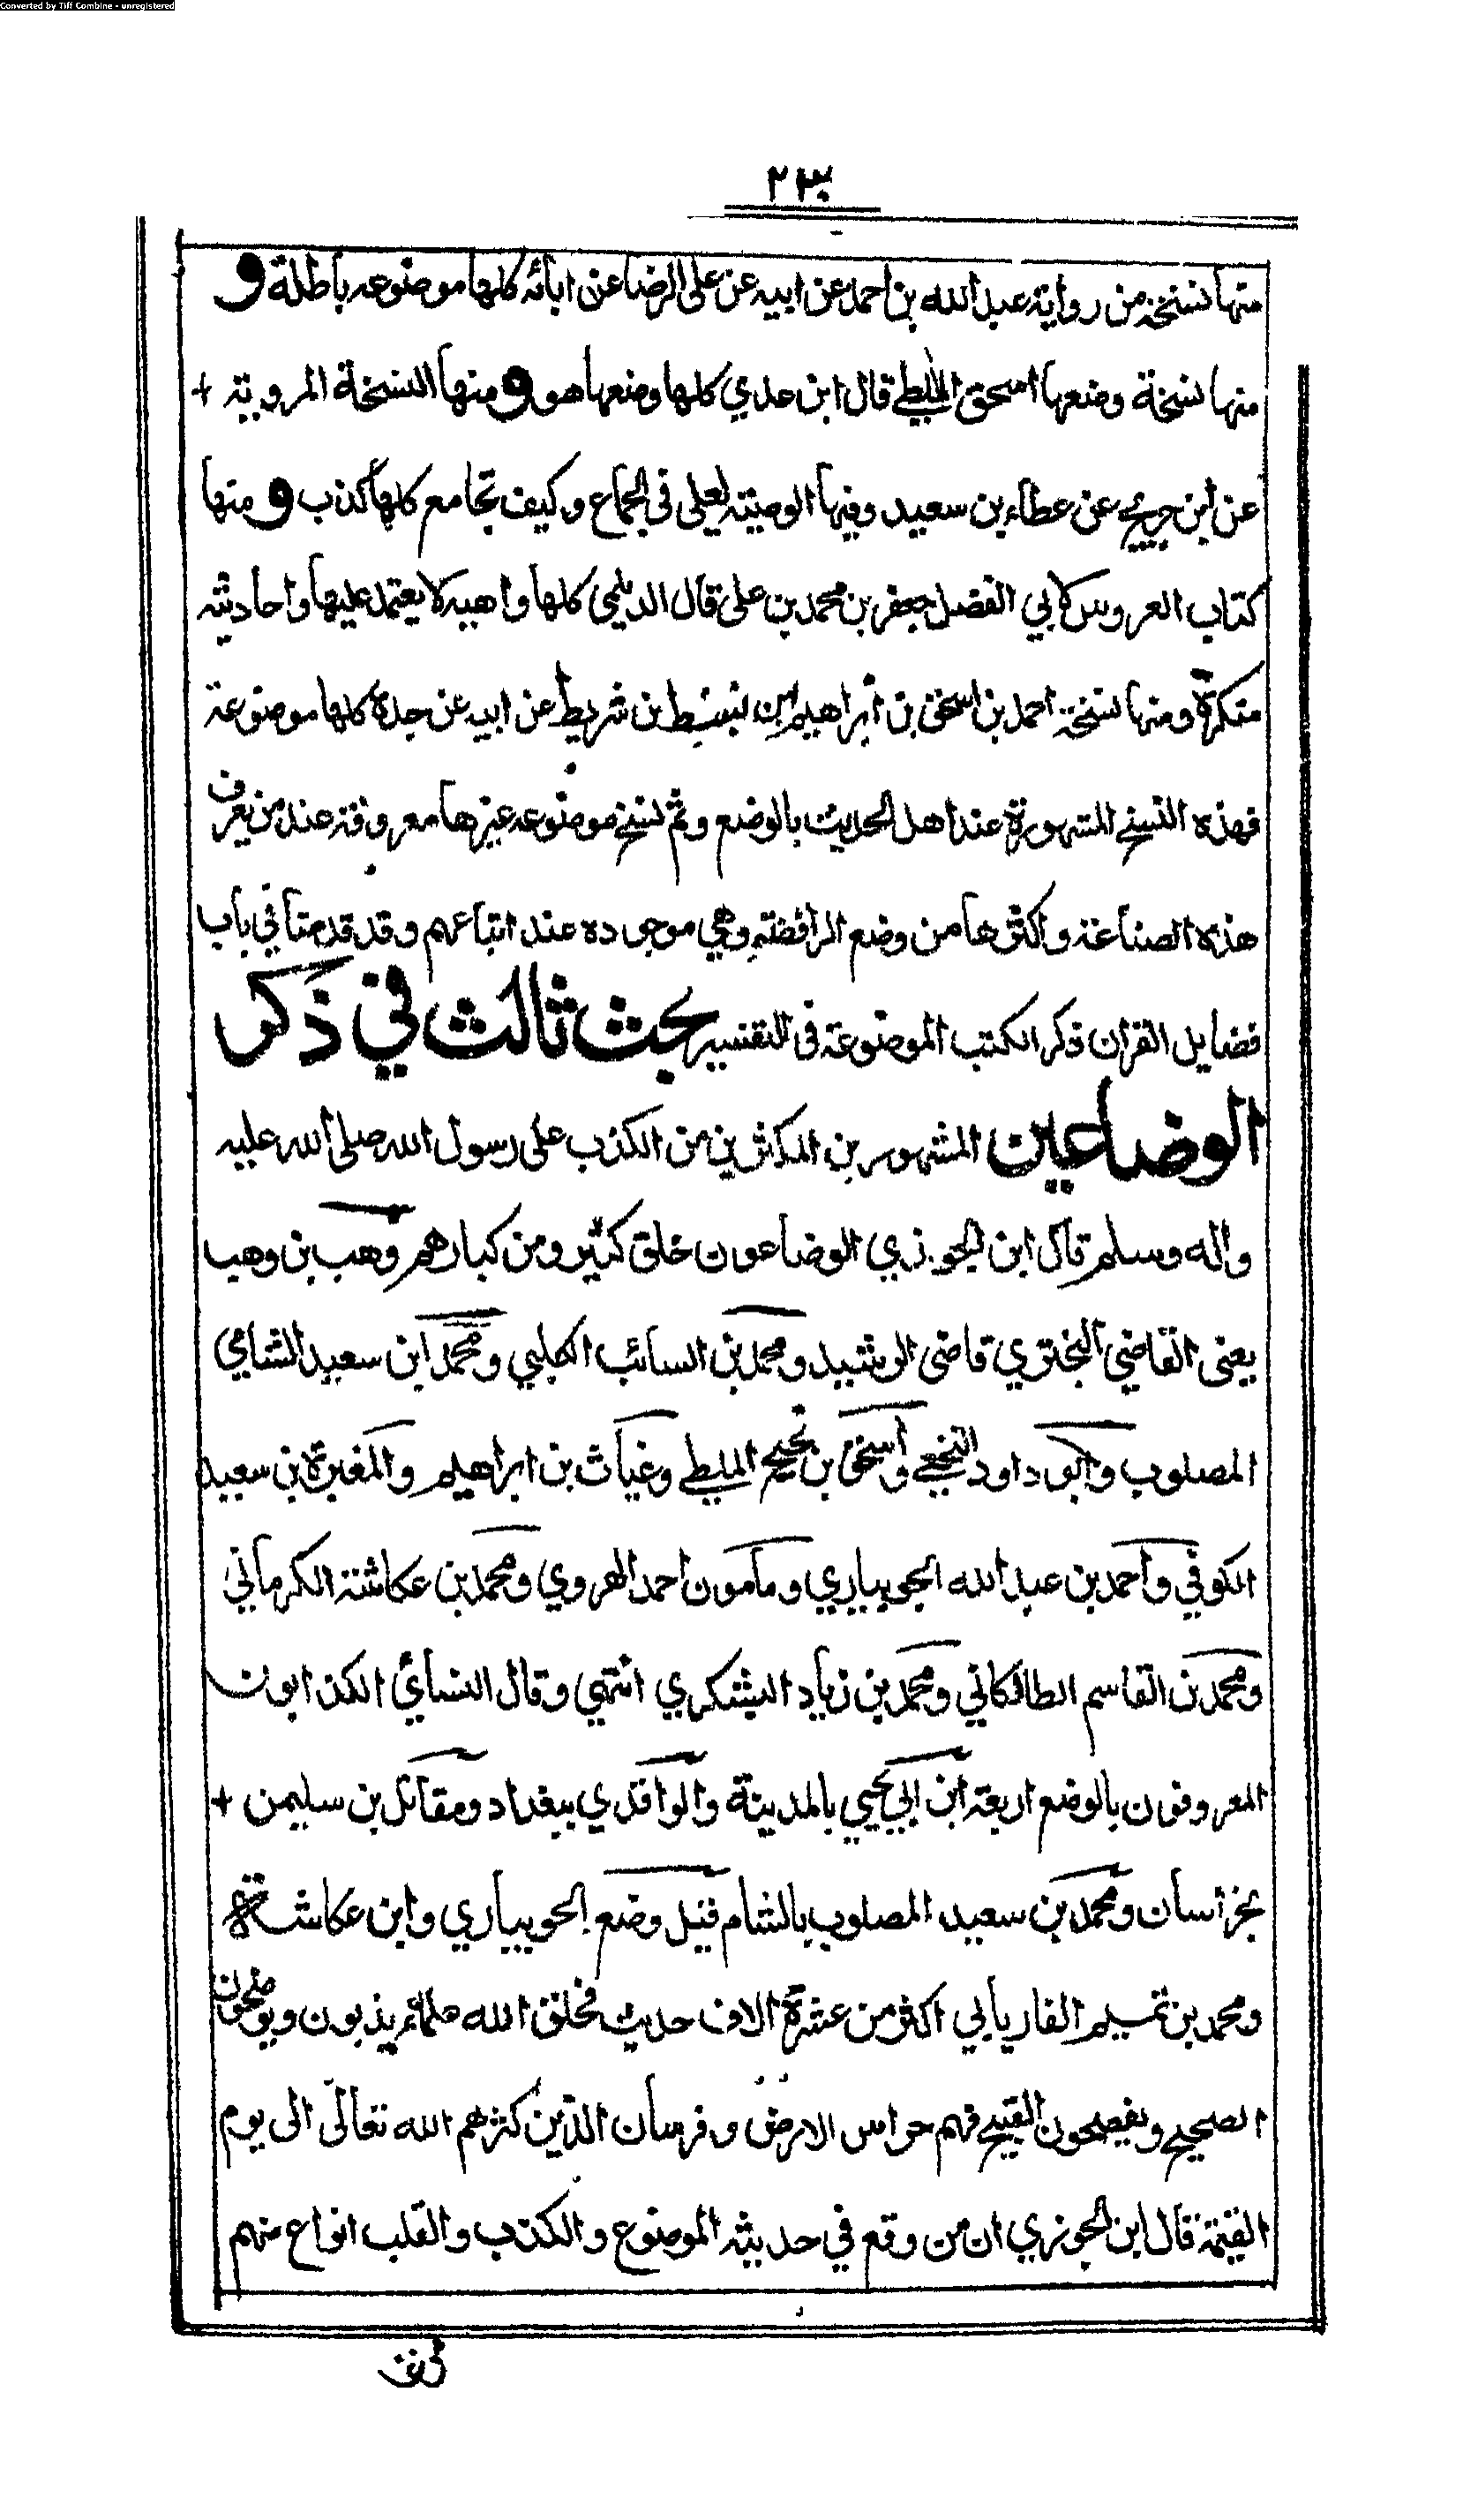 Converted by Tiff Combine - unregistered
٢٣٠
منها نسخة من رواية عبد الله بن احمد عن ابيه عن على الرضا عن ابائه كلها موضوعه باطلة و
منها نسخة وضعها اسحق الملطي قال ابن عدي كلها وضعها هو و منها النسخة المروية +
عن ابن جريج عن عطاء بن سعيد وفيها الوصية لعلى في الجماع وكيف تجامع كلها كذب و منها
كتاب العروس لابي الفضل جعفر بن محمد بن على قال الديلمي كلها واهية لا يعتمد عليها واحاديثه
منكرة ومنها نسخة احمد بن اسحق بن ابراهيم بن نبيط بن شريط عن ابيه عن جده كلها موضوعة
فهذه النسخ المشهورة عند اهل الحديث بالوضع وثم نسخ موضوعه غيرها معروفة عند من يعرف
هذه الصناعة واكثرها من وضع الرافضة وهي موجوده عند اتباعهم وقد قدمنا في باب
فضايل القران ذكر الكتب الموضوعة فى التفسير بحث ثالث في ذكر
الوضاعين المشهورين المكثرين من الكذب على رسول الله صلى الله عليه
واله وسلم قال ابن الجوزي الوضاعون خلق كثير ومن كبارهم وهب بن وهب
يعنى القاضي البختري قاضى الرشيد ومحمد بن السائب الكلبي ومحمد ابن سعيد الشامي
المصلوب وابو داود النخعي واسحق بن نجيح الملطي وغياث بن ابراهيم والمغيرة بن سعيد
الكوفي واحمد بن عبد الله الجويباري ومأمون احمد الهروي ومحمد بن عكاشة الكرماني
ومحمد بن القاسم الطالكاني ومحمد بن زياد اليشكري انتهي وقال النسائي الكذابون
المعروفون بالوضع اربعة ابن ابي يحيي بالمدينة والواقدي ببغداد ومقاتل بن سليمن +
بخراسان ومحمد بن سعيد المصلوب بالشام قيل وضع الجويباري وابن عكاشة
ومحمد بن تميم الفاريابي اكثر من عشرة الاف حديث فخلق الله علماء يذبون ويوضحون
الصحيح ويفضحون القبيح فهم حراس الارض وفرسان الدين كثرهم الله تعالى الى يوم
القيمة قال ابن الجوزي ان من وقع في حديثه الموضوع والكذب والقلب انواع منهم